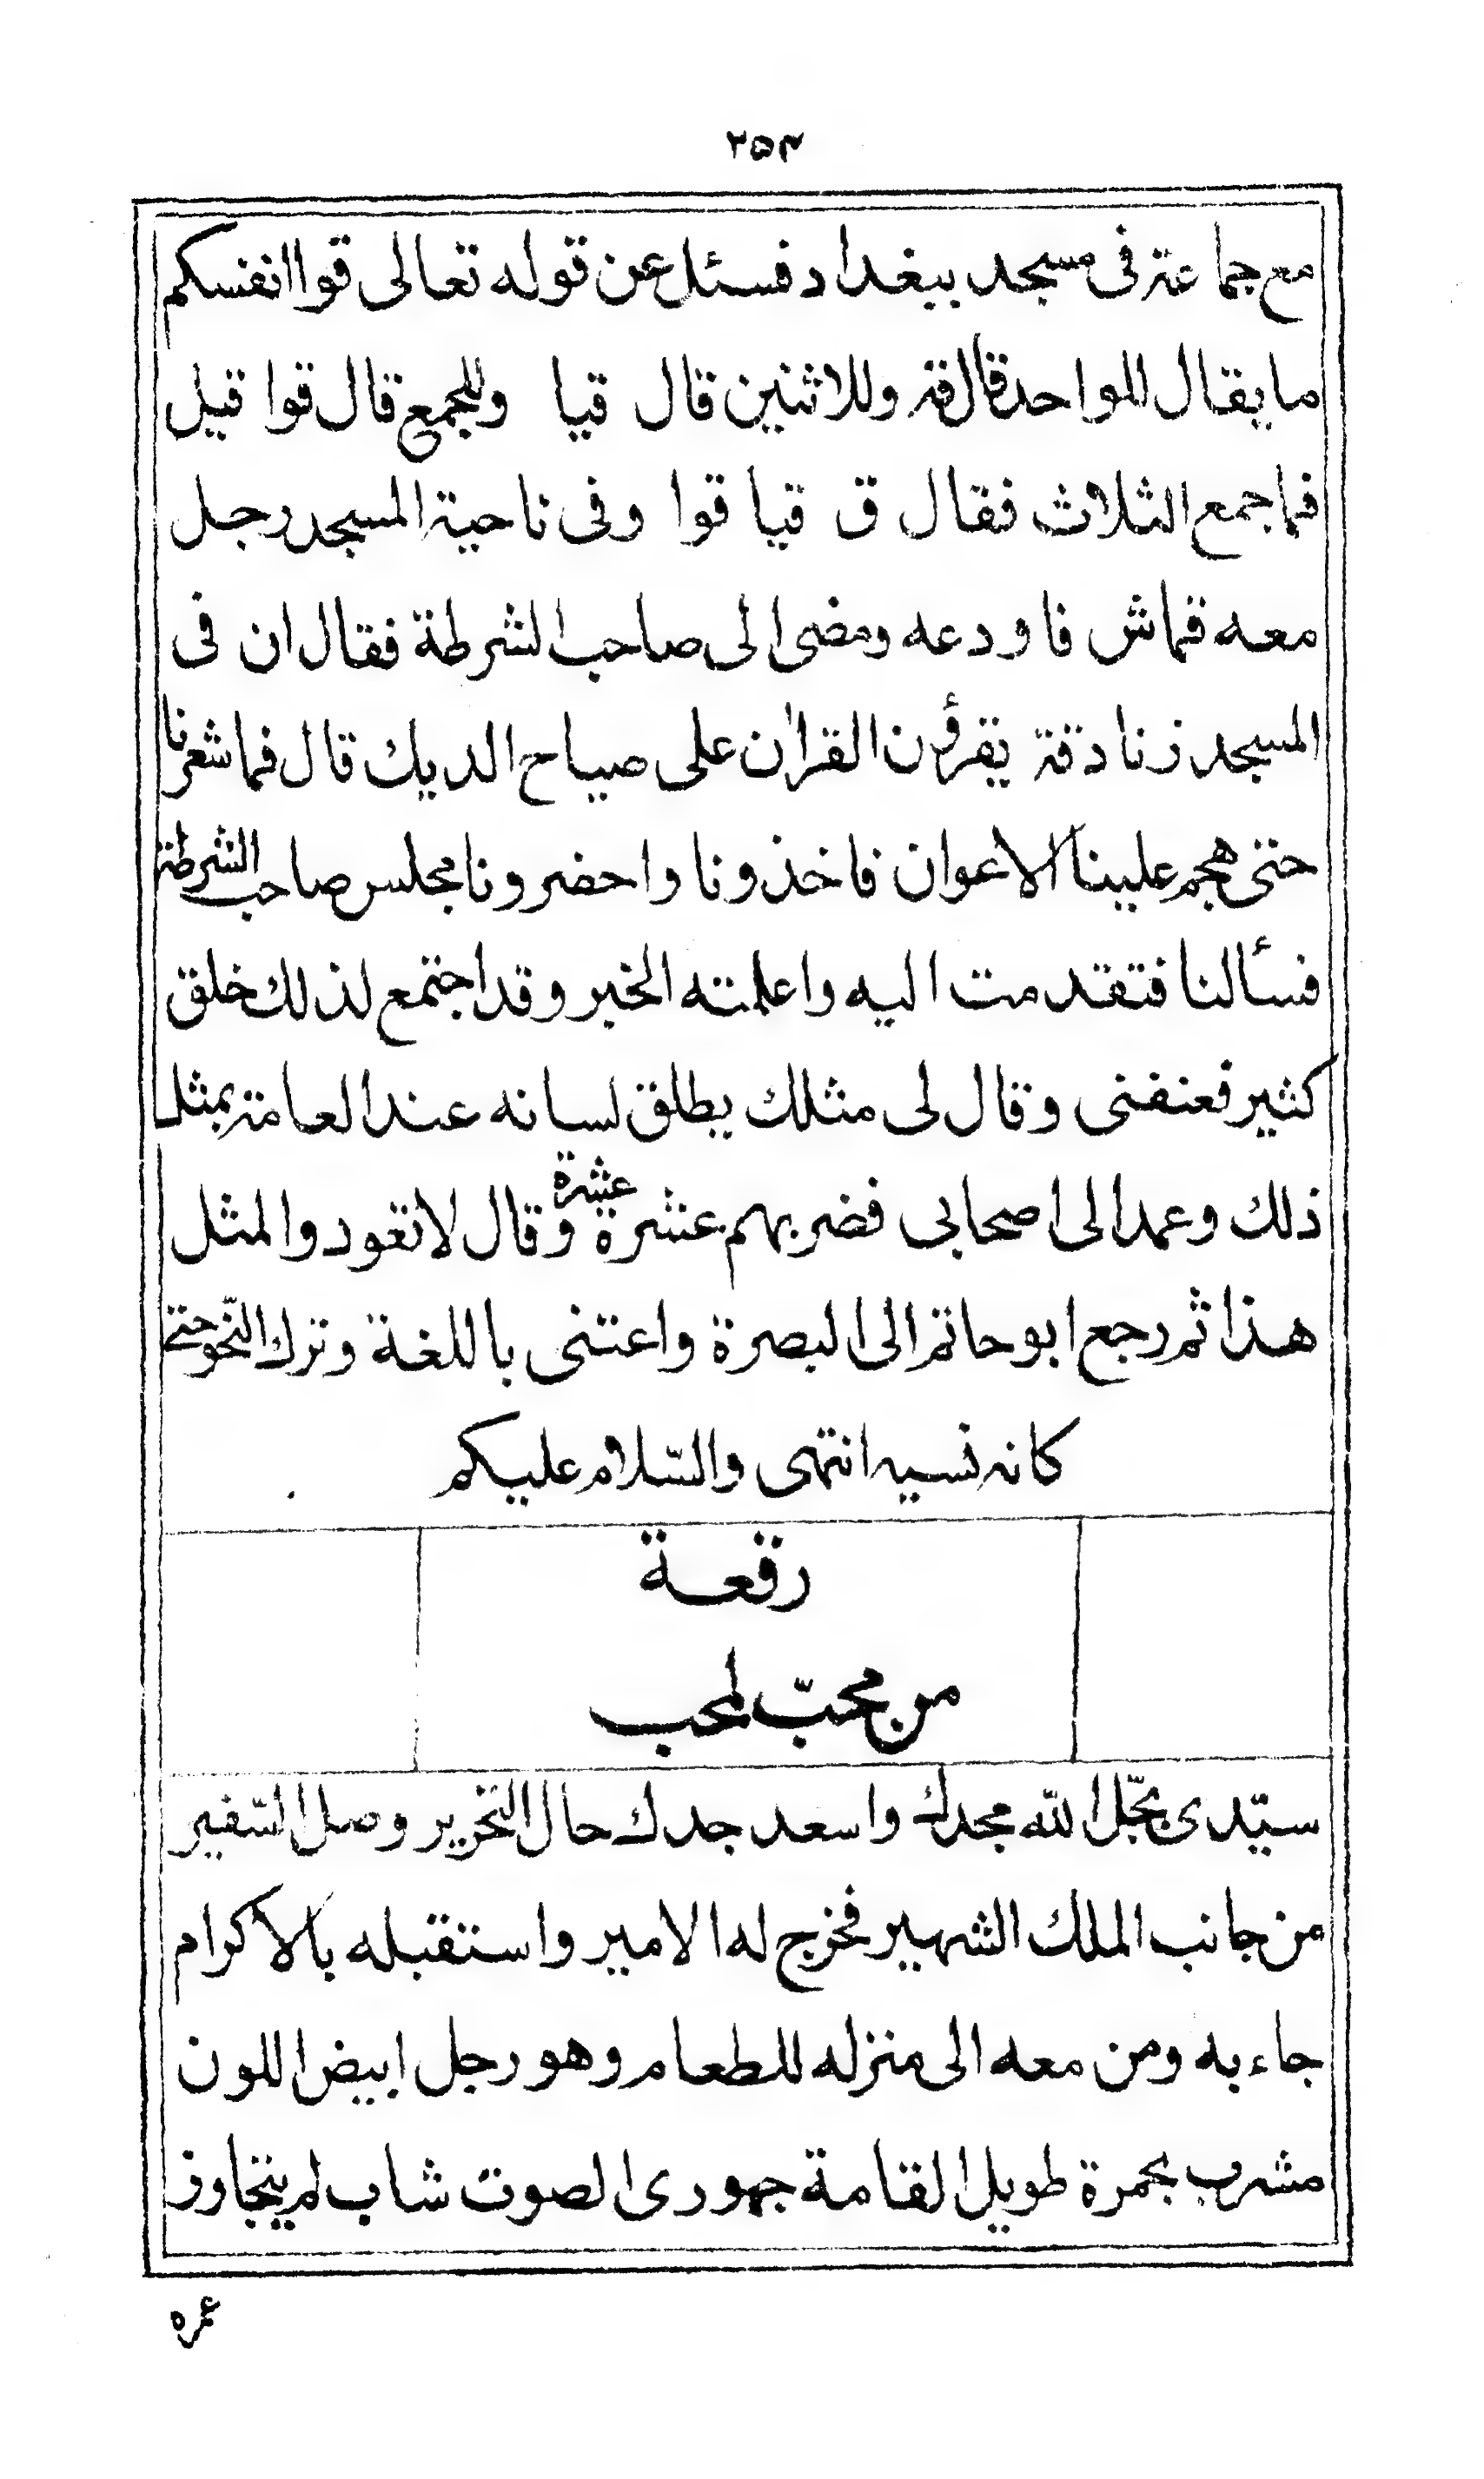 ٢٥٤
مع جماعة فى مسجد ببغداد فسئل عن قوله تعالى قوا انفسكم
ما يقال للواحد قال قه وللاثنين قال قيا وللجمع قال قوا قيل
فما جمع الثلاث فقال ق قيا قوا وفى ناحية المسجد رجل
معه قماش فاودعه ومضى الى صاحب الشرطة فقال ان فى
المسجد زنادقة يقرؤن القران على صياح الديك قال فما شعرنا
حتى هجم علينا الاعوان فاخذونا واحضرونا مجلس صاحب الشرطة
فسألنا فتقدمت اليه واعلمته الخبر وقد اجتمع لذلك خلق
كثير فعنفنى وقال لى مثلك يطلق لسانه عند العامة بمثل
ذلك وعمد الى اصحابى فضربهم عشرة عشرة وقال لا تعودوا لمثل
هذا ثم رجع ابو حاتم الى البصرة واعتنى باللغة وترك النّحو حتى
كانه نسيه انتهى والسّلام عليكم
رقعة
من محبّ لمحب
سيّدى بجّل الله مجدك واسعد جدك حال التحرير وصل السّفير
من جانب الملك الشهير فخرج له الامير واستقبله بالاكرام
جاء به ومن معه الى منزله للطعام وهو رجل ابيض اللون
مشرب بحمرة طويل القامة جهورى الصوت شاب لم يتجاوز
عمره